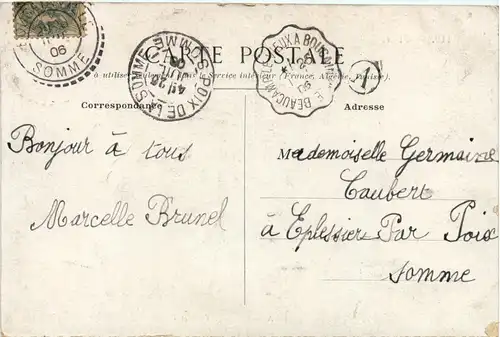 CARTE POSTALE
à utiliser dans le Service intérieur (France, Algérie, Tunisie).
06
SOMME
POIX DE LA SOMME
SOMME
06
Correspondance
Adresse
Bonjour à tous
Marcelle Brunel
Mademoiselle Germaine
Caubert
à Eplessier Par Poix
Somme